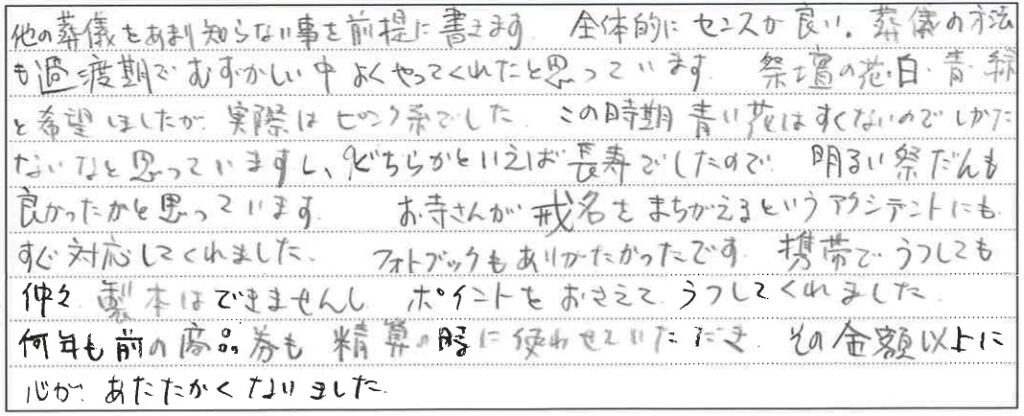 他の葬儀をあまり知らない事を前提に書きます。 全体的にセンスが良い。葬儀の方法
も過渡期でむずかしい中よくやってくれたと思っています。 祭壇の花・白・青・緑
と希望しましたが、実際はピンク系でした。 この時期青い花はすくないのでしかた
ないなと思っていますし、どちらかといえば長寿でしたので、明るい祭だんも
良かったかと思っています。 お寺さんが戒名をまちがえるというアクシデントにも
すぐ対応してくれました。 フォトブックもありがたかったです。携帯でうつしても
仲々製本はできませんし、ポイントをおさえてうつしてくれました。
何年も前の商品券も精算の時に使わせていただき、その金額以上に
心があたたかくなりました。